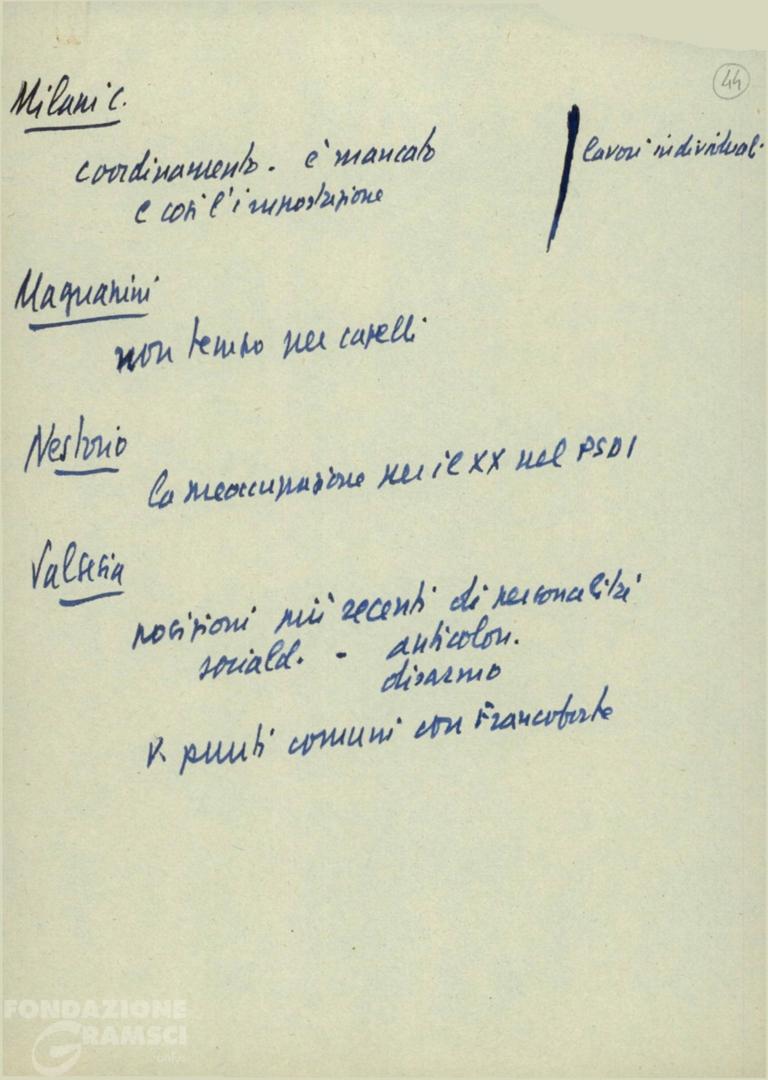 44
Milani C.
coordinamento - è mancato
e così l'impostazione
lavori individuali
Magnanini
non tempo per capelli
Nestorio
la preoccupazione per il XX nel PSDI
Valsesia
posizioni più recenti di personalità
sociald. - anticolon.
disarmo
V. punti comuni con Francoforte
FONDAZIONE
GRAMSCI
onlus